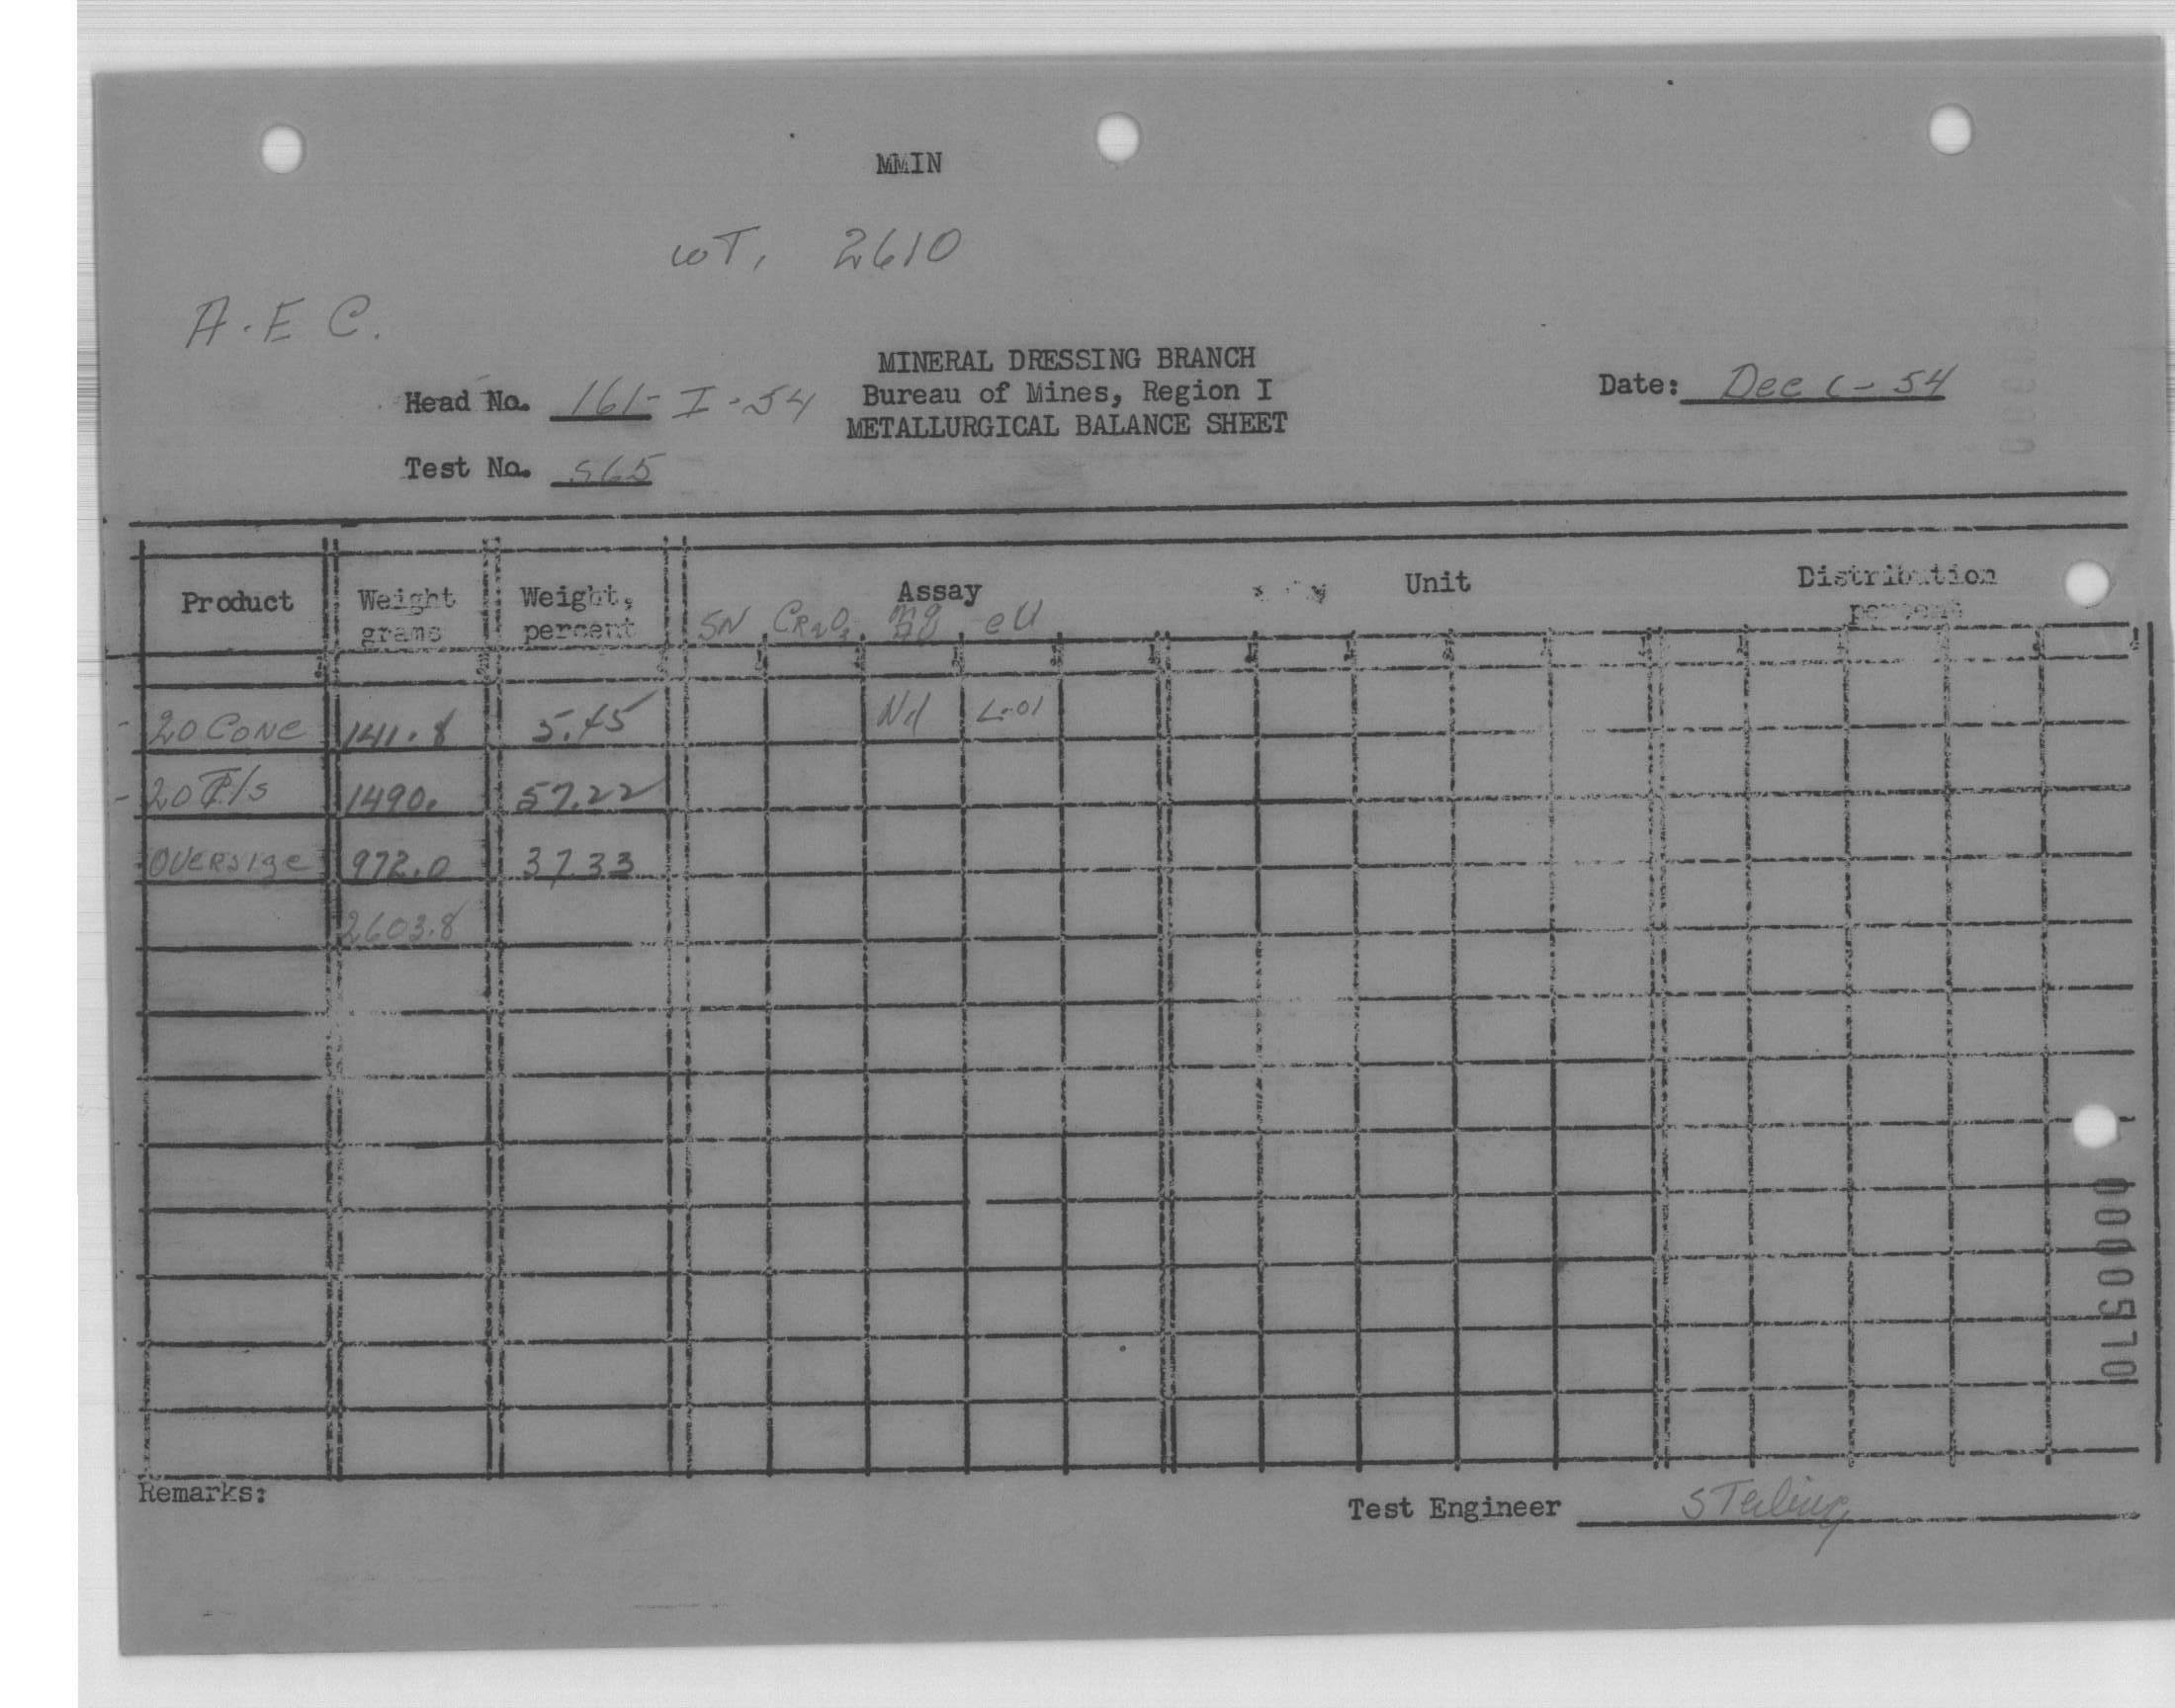 MMIN
WT. 2610
A.E C.
MINERAL DRESSING BRANCH
Head No. 161-I-54 Bureau of Mines, Region I Date: Dec 6-54
METALLURGICAL BALANCE SHEET
Test No. 565
Product Weight grams Weight, percent Assay Unit Distribution percent
SN Cr2O3 eU
-20 Conc 141.8 5.45 Nil L-01
-20 T/s 1490. 57.22
Oversize 972.0 37.33
2603.8
Remarks:
Test Engineer Sterling
0000570